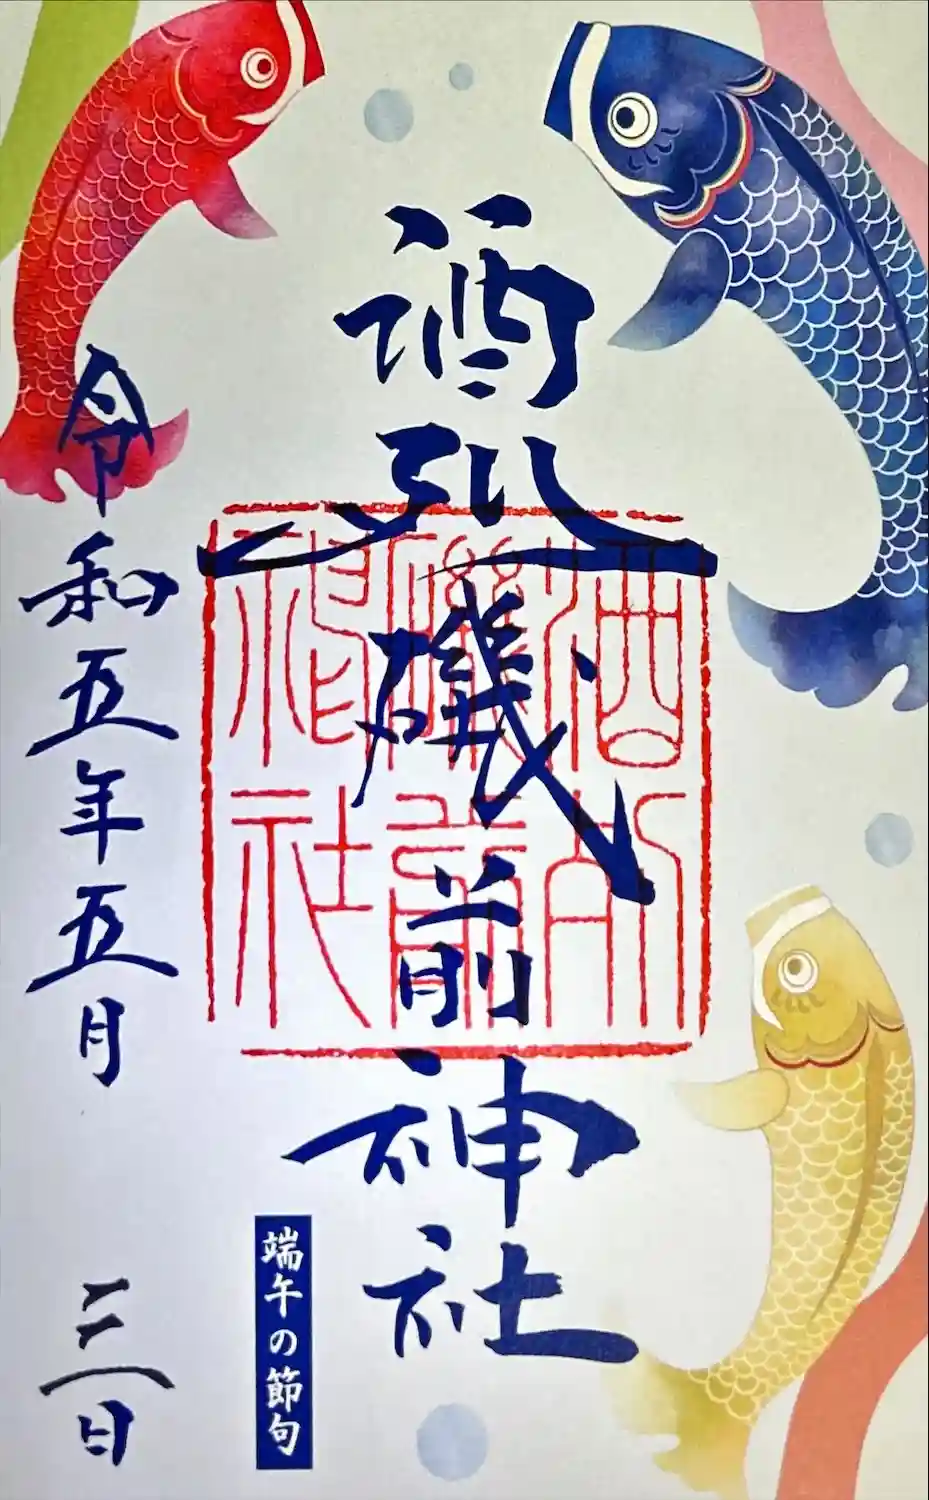 酒列磯前神社
酒列
磯前
神社
端午の節句
令和五年五月三日